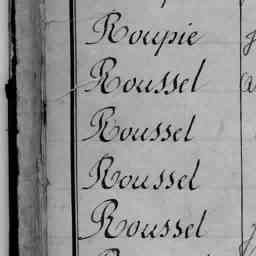 Roupie
Roussel
Roussel
Roussel
Roussel